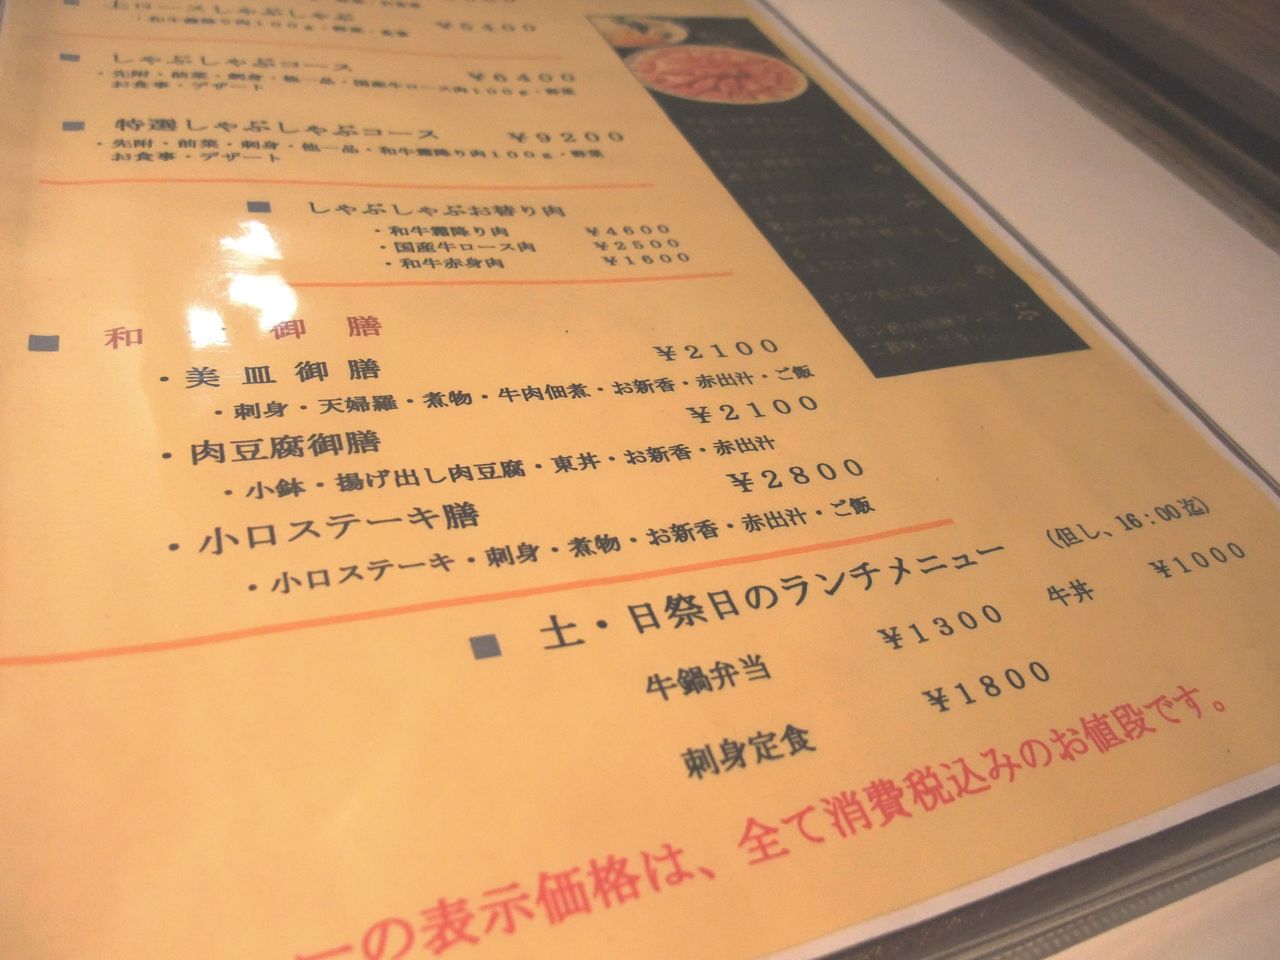 上ロースしゃぶしゃぶ ¥5400
■ しゃぶしゃぶコース ¥6400
・先附・前菜・刺身・他一品・国産牛ロース肉100g・野菜
お食事・デザート
■ 特選しゃぶしゃぶコース ¥9200
・先附・前菜・刺身・他一品・和牛霜降り肉100g・野菜
お食事・デザート
■ しゃぶしゃぶお替り肉
・和牛霜降り肉 ¥4600
・国産牛ロース肉 ¥2500
・和牛赤身肉 ¥1600
■ 和 御 膳
・美 皿 御 膳 ¥2100
・刺身・天婦羅・煮物・牛肉佃煮・お新香・赤出汁・ご飯
・肉豆腐御膳 ¥2100
・小鉢・揚げ出し肉豆腐・東丼・お新香・赤出汁
・小口ステーキ膳 ¥2800
・小口ステーキ・刺身・煮物・お新香・赤出汁・ご飯
■ 土・日祭日のランチメニュー (但し、16:00迄)
牛鍋弁当 ¥1300 牛丼 ¥1000
刺身定食 ¥1800
ーの表示価格は、全て消費税込みのお値段です。